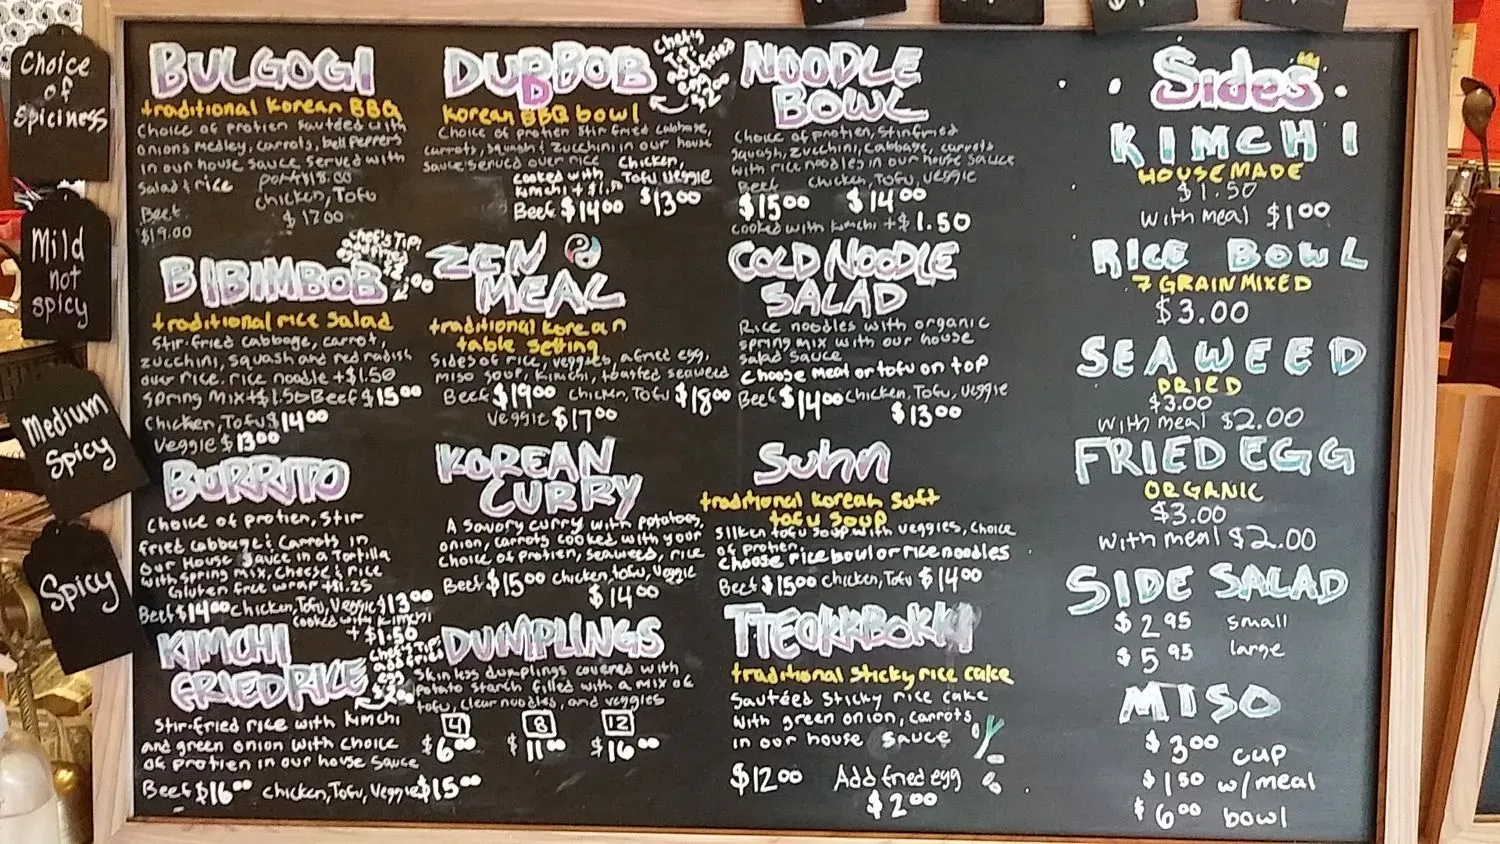 Choice
of
Spiciness
Mild
not
spicy
Medium
Spicy
Spicy
BULGOGI
traditional Korean BBQ
Choice of protien sautéed with
onions medley, carrots, bell peppers
in our house sauce served with
salad & rice
pork $18.00
chicken, Tofu
$17.00
Beef
$19.00
BIBIMBOB
Chef's Tip!
traditional rice salad
Stir-fried cabbage, carrot,
zucchini, squash and red radish
over rice. rice noodle +$1.50
spring mix +$1.50 Beef $15.00
Chicken, Tofu $14.00
Veggie $13.00
BURRITO
choice of protien, stir
fried cabbage & carrots in
our House Sauce in a Tortilla
with spring mix, cheese & rice
Gluten free wrap +$1.25
Beef $14.00 chicken, Tofu, Veggie $13.00
cooked with Kimchi
+$1.50
KIMCHI
FRIED RICE
Chef's Tip
add fried
egg
$2.00
Stir-fried rice with kimchi
and green onion with choice
of protien in our house sauce
Beef $16.00 chicken, Tofu, Veggie $15.00
DUBBOB
Chef's
Tip
add fried
egg
$2.00
korean BBQ bowl
Choice of protien stir fried cabbage,
carrots, squash & zucchini in our house
sauce served over rice
cooked with
kimchi +$1.50
Beef $14.00
Chicken,
Tofu veggie
$13.00
ZEN
MEAL
traditional korean
table setting
Sides of rice, veggies, a fried egg,
miso soup, kimchi, toasted seaweed
Beef $19.00 chicken, Tofu $18.00
Veggie $17.00
KOREAN
CURRY
A savory curry with potatoes,
onion, carrots cooked with your
choice of protien, seaweed, rice
Beef $15.00 chicken, tofu, Veggie
$14.00
DUMPLINGS
Skinless dumplings covered with
potato starch filled with a mix of
tofu, clear noodles, and veggies
4 8 12
$6.00 $11.00 $16.00
NOODLE
BOWL
Choice of protien, stir fried
squash, zucchini, cabbage, carrots
with rice noodles in our house sauce
Beef chicken, Tofu, veggie
$15.00 $14.00
cooked with kimchi +$1.50
COLD NOODLE
SALAD
Rice noodles with organic
spring mix with our house
salad sauce
Choose meat or tofu on top
Beef $14.00 chicken, Tofu, Veggie
$13.00
Suhn
traditional korean soft
tofu soup
silken tofu soup with veggies, choice
of protien.
choose rice bowl or rice noodles
Beef $15.00 chicken, Tofu $14.00
TTEOKKBOKKI
traditional sticky rice cake
Sautéed sticky rice cake
with green onion, carrots
in our house sauce
$12.00 Add fried egg
$2.00
Sides
KIMCHI
HOUSEMADE
$1.50
with meal $1.00
RICE BOWL
7 GRAIN MIXED
$3.00
SEAWEED
DRIED
$3.00
with meal $2.00
FRIED EGG
ORGANIC
$3.00
with meal $2.00
SIDE SALAD
$2.95 small
$5.95 large
MISO
$3.00 cup
$1.50 w/meal
$6.00 bowl